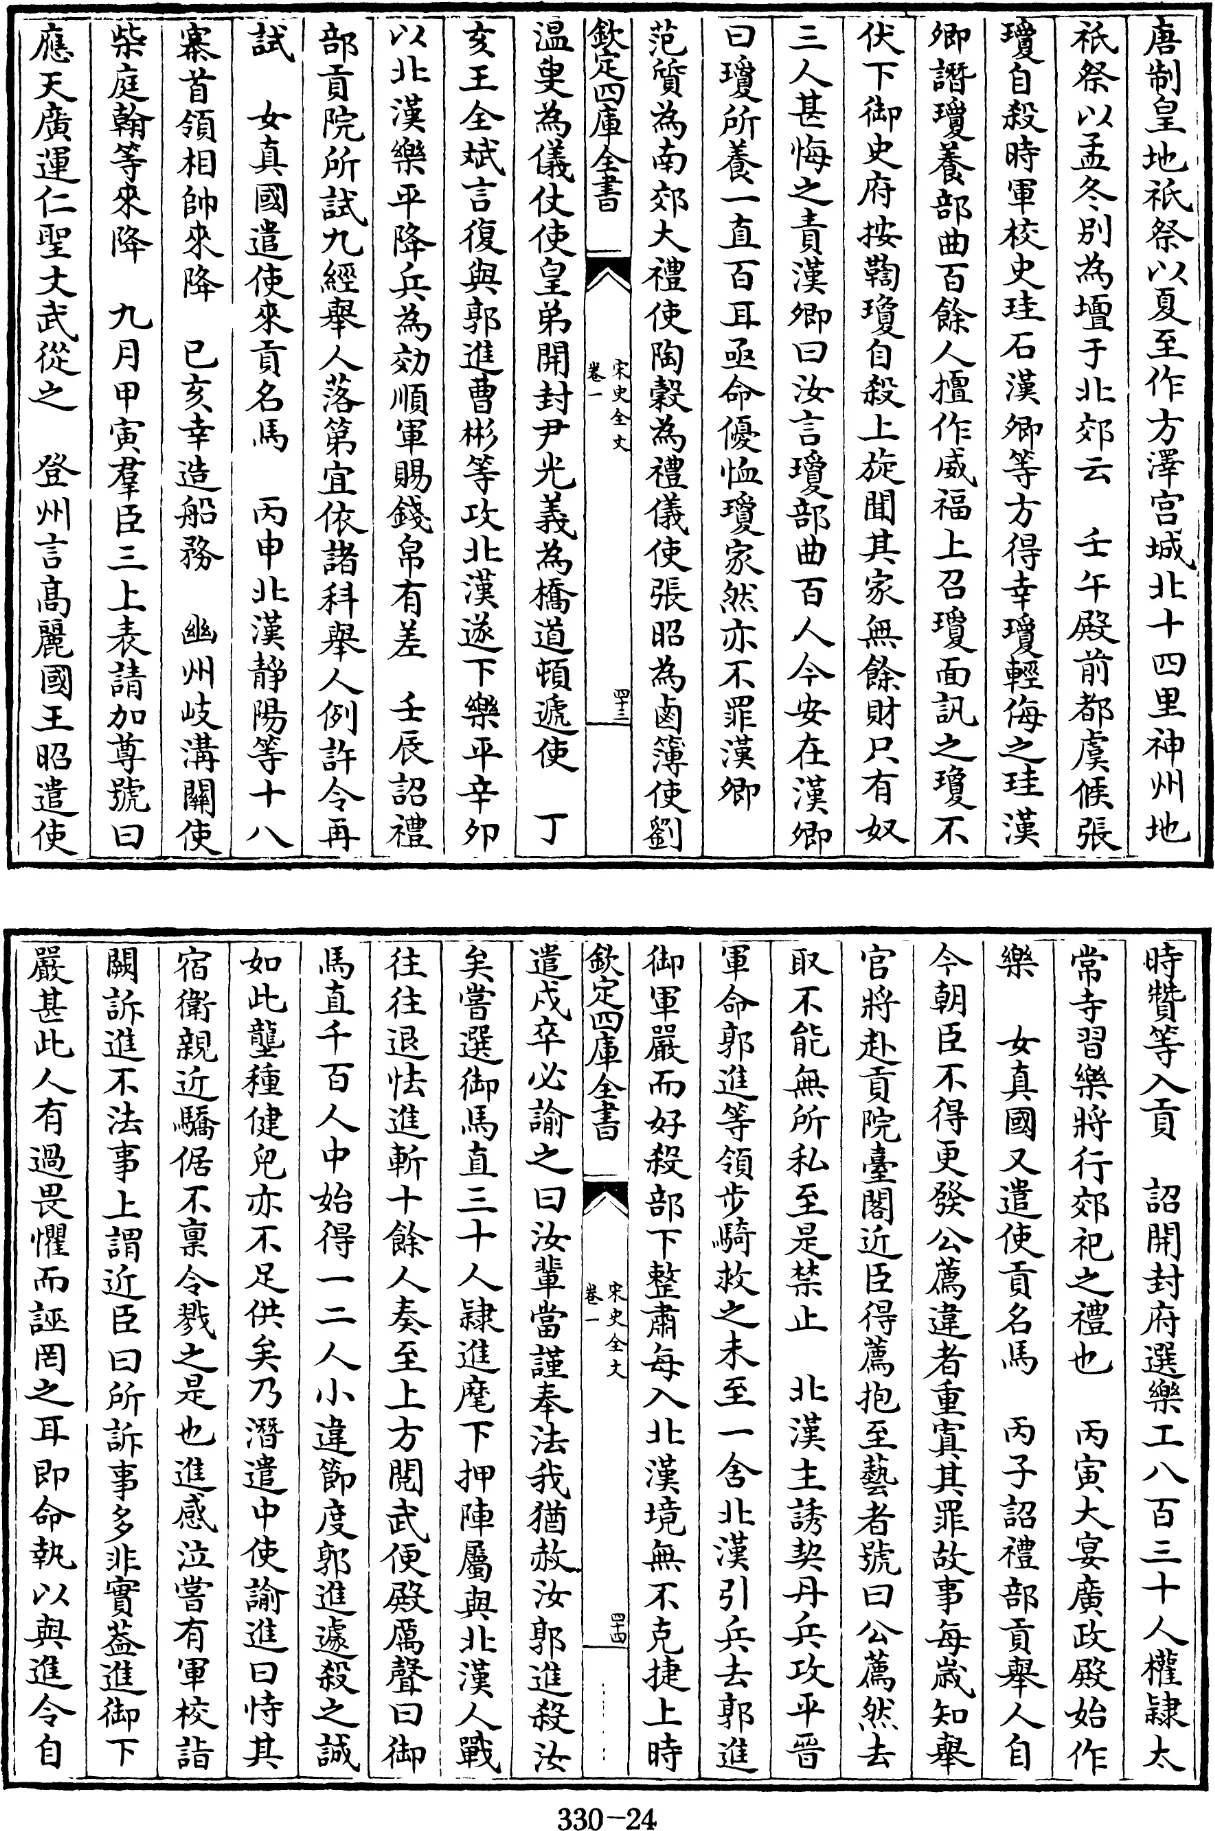 唐制皇地祇祭以夏至作方澤宫城北十四里神州地
祇祭以孟冬别為壇于北郊云　壬午殿前都虞候張
瓊自殺時軍校史珪石漢卿等方得幸瓊輕侮之珪漢
卿譖瓊養部曲百餘人擅作威福上召瓊面訊之瓊不
伏下御史府按鞫瓊自殺上旋聞其家無餘財只有奴
三人甚悔之責漢卿曰汝言瓊部曲百人今安在漢卿
曰瓊所養一直百耳亟命優恤瓊家然亦不罪漢卿
范質為南郊大禮使陶穀為禮儀使張昭為鹵簿使劉
欽定四庫全書　宋史全文卷一　四十三
温叟為儀仗使皇弟開封尹光義為橋道頓遞使　丁
亥王全斌言復與郭進曹彬等攻北漢遂下樂平辛卯
以北漢樂平降兵為効順軍賜錢帛有差　壬辰詔禮
部貢院所試九經舉人落第宜依諸科舉人例許令再
試　女真國遣使來貢名馬　丙申北漢靜陽等十八
寨首領相帥來降　已亥幸造船務　幽州岐溝關使
柴庭翰等來降　九月甲寅羣臣三上表請加尊號曰
應天廣運仁聖文武從之　登州言高麗國王昭遣使
時贊等入貢　詔開封府選樂工八百三十人權隷太
常寺習樂將行郊祀之禮也　丙寅大宴廣政殿始作
樂　女真國又遣使貢名馬　丙子詔禮部貢舉人自
今朝臣不得更發公薦違者重寘其罪故事每歲知舉
官將赴貢院臺閣近臣得薦抱至藝者號曰公薦然去
取不能無所私至是禁止　北漢主誘契丹兵攻平晉
軍命郭進等領步騎救之未至一舍北漢引兵去郭進
御軍嚴而好殺部下整肅每入北漢境無不克捷上時
欽定四庫全書　宋史全文卷一　四十四
遣戍卒必諭之曰汝輩當謹奉法我猶赦汝郭進殺汝
矣嘗選御馬直三十人隷進麾下押陣屬與北漢人戰
往往退怯進斬十餘人奏至上方閱武便殿厲聲曰御
馬直千百人中始得一二人小違節度郭進遽殺之誠
如此壟種健兒亦不足供矣乃潛遣中使諭進曰恃其
宿衛親近驕倨不禀令戮之是也進感泣嘗有軍校詣
闕訴進不法事上謂近臣曰所訴事多非實葢進御下
嚴甚此人有過畏懼而誣罔之耳即命執以與進令自
330-24